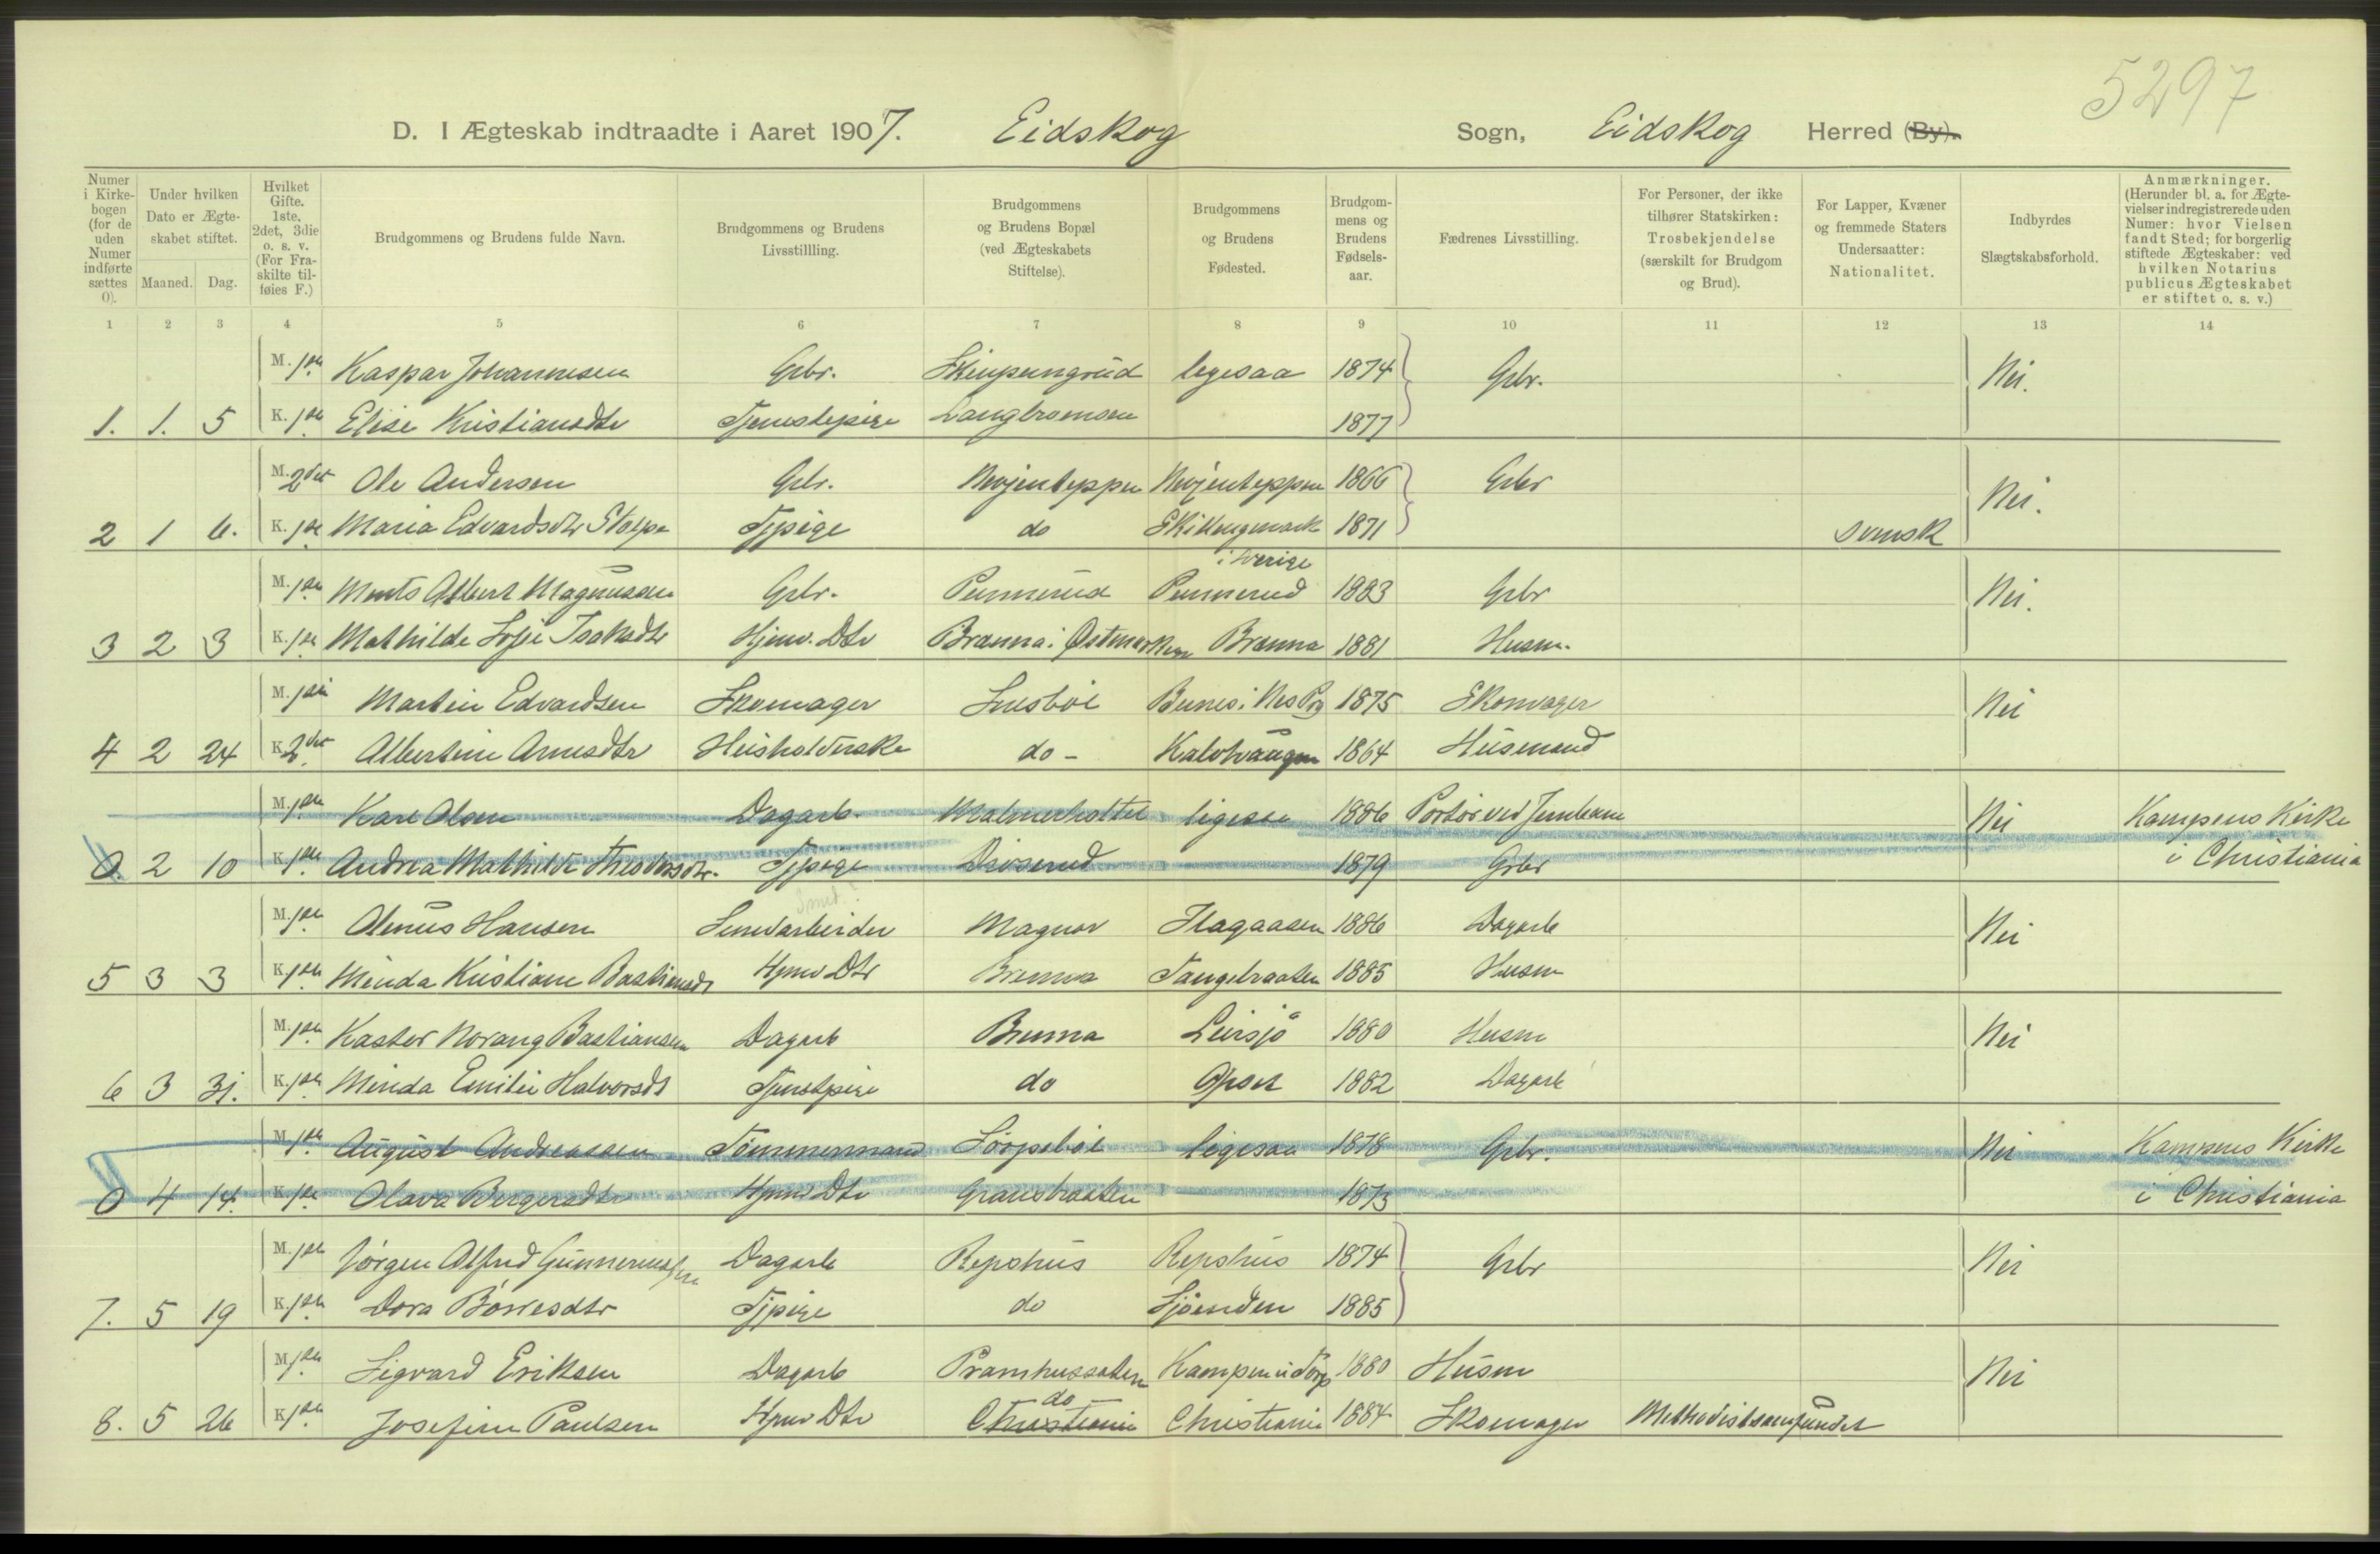 5297
D. I Ægteskab indtraadte i Aaret 1907. Eidskog Sogn, Eidskog Herred (By).
Numer i Kirkebogen (for de uden Numer indførte sættes 0).
Under hvilken Dato er Ægteskabet stiftet.
Maaned. Dag.
Hvilket Gifte. 1ste, 2det, 3die o. s. v. (For Fraskilte tilføies F.)
Brudgommens og Brudens fulde Navn.
Brudgommens og Brudens Livsstillling.
Brudgommens og Brudens Bopæl (ved Ægteskabets Stiftelse).
Brudgommens og Brudens Fødested.
Brudgommens og Brudens Fødselsaar.
Fædrenes Livsstilling.
For Personer, der ikke tilhører Statskirken: Trosbekjendelse (særskilt for Brudgom og Brud).
For Lapper, Kvæner og fremmede Staters Undersaatter: Nationalitet.
Indbyrdes Slægtskabsforhold.
Anmærkninger. (Herunder bl. a. for Ægtevielser indregistrerede uden Numer: hvor Vielsen fandt Sted; for borgerlig stiftede Ægteskaber: ved hvilken Notarius publicus Ægteskabet er stiftet o. s. v.)
1 2 3 4 5 6 7 8 9 10 11 12 13 14
M. 1ste Kaspar Johannesen Gbr. ligesaa 1874 Gbr. Nei.
1. 1. 5 K. 1ste Elise Kristiansdtr Tjenestepige Langbromoen 1877
M. 2det Ole Andersen Gbr. 1866 Gbr Nei.
2 1 6. K. 1ste Maria Edvardsdtr Tjpige do Skillingmark 1871 svensk
i Sverige
M. 1ste Albert Magnussen Gbr. Pennerud Pennerud 1883 Gbr Nei.
3 2 3 K. 1ste Mathilde Sofie Isaksdtr Hjemv. Dtr Brænna i Østmarken Brænna 1881 Husm.
M. 1ste Martin Edvardsen Skomager 1875 Skomager Nei
4 2 24 K. 2det Albertine Arnesdtr Husholderske do - 1864 Husmand
M. 1ste Karl Olsen Dagarb. ligesaa 1886 Portør ved Jernbane Nei Kampens Kirke
0 2 10 K. 1ste Andrea Mathilde Tjpige 1879 Gbr i Christiania
M. 1ste Olenus Hansen Magnor Hagaasen 1886 Dagarb Nei
5 3 3 K. 1ste Minda Kristiane Bastiansdtr Hjmv Dtr Tangebraaten 1885 Husm
M. 1ste Kastor Norang Bastiansen Dagarb Leirsjø 1880 Husm Nei
6 3 31. K. 1ste Minda Emilie Halvorsdt Tjenstpige do 1882 Dagarb
M. 1ste August Andreassen Tømmermand ligesaa 1878 Gbr. Nei Kampens Kirke
0 4 14. K. 1ste Olava Bergersdtr Hjmv Dtr 1873 i Christiania
M. 1ste Jørgen Alfred Gunnerussen Dagarb Repshus Repshus 1874 Gbr Nei
7. 5 19 K. 1ste Dora Børresdtr Tjpige do Sjøenden 1885
M. 1ste Sigvard Eriksen Dagarb 1880 Husm Nei
do
8. 5 26 K. 1ste Josefine Paulsen Hjmv Dtr Christiania Christiania 1884 Skomager Methodistsamfundet